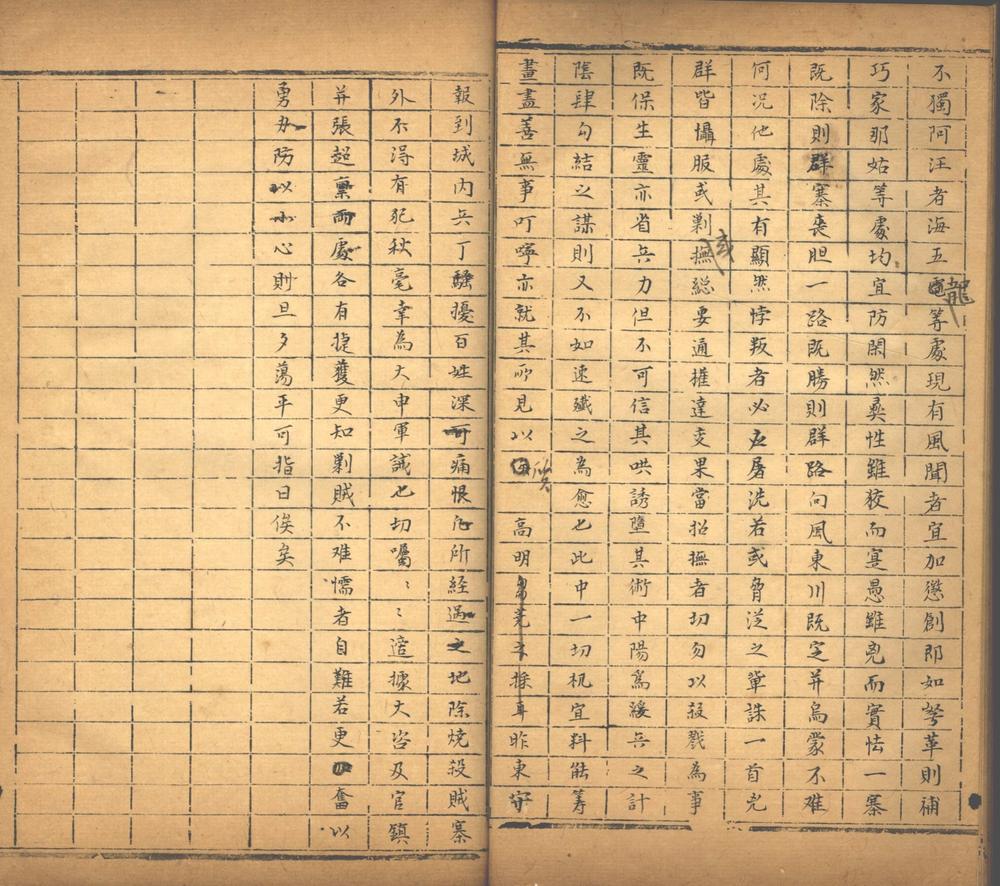 不獨阿汪者海五龍等處現有風聞者宜加懲創即如弩革則補
巧家那姑等處均宜防閑然彝性雖狡而寔愚雖兇而實怯一寨
既除則群寨喪胆一路既勝則群路向風東川既定并烏蒙不难
何况他處其有顯然悖叛者必应屠洗若或脅从之軰誅一首兇
群皆懾服或剿或撫総要通權達变果當招撫者切勿以殺戮為事
既保生靈亦省兵力但不可信其哄誘墮其術中陽為緩兵之計
陰肆勾結之謀則又不如速殲之為愈也此中一切机宜料能籌
畫盡善無事叮嚀亦就其所見以俟高明采擇耳昨東守
報到城内兵丁騷擾百姓深痛恨凡所経過之地除燒殺賊寨
外不淂有犯秋毫幸為大申軍誡也切嘱〻〻適據大咨及官鎮
并張超禀而處各有捷獲更知剿賊不难懦者自難若更奮以
勇力防以小心則旦夕蕩平可指日俟矣